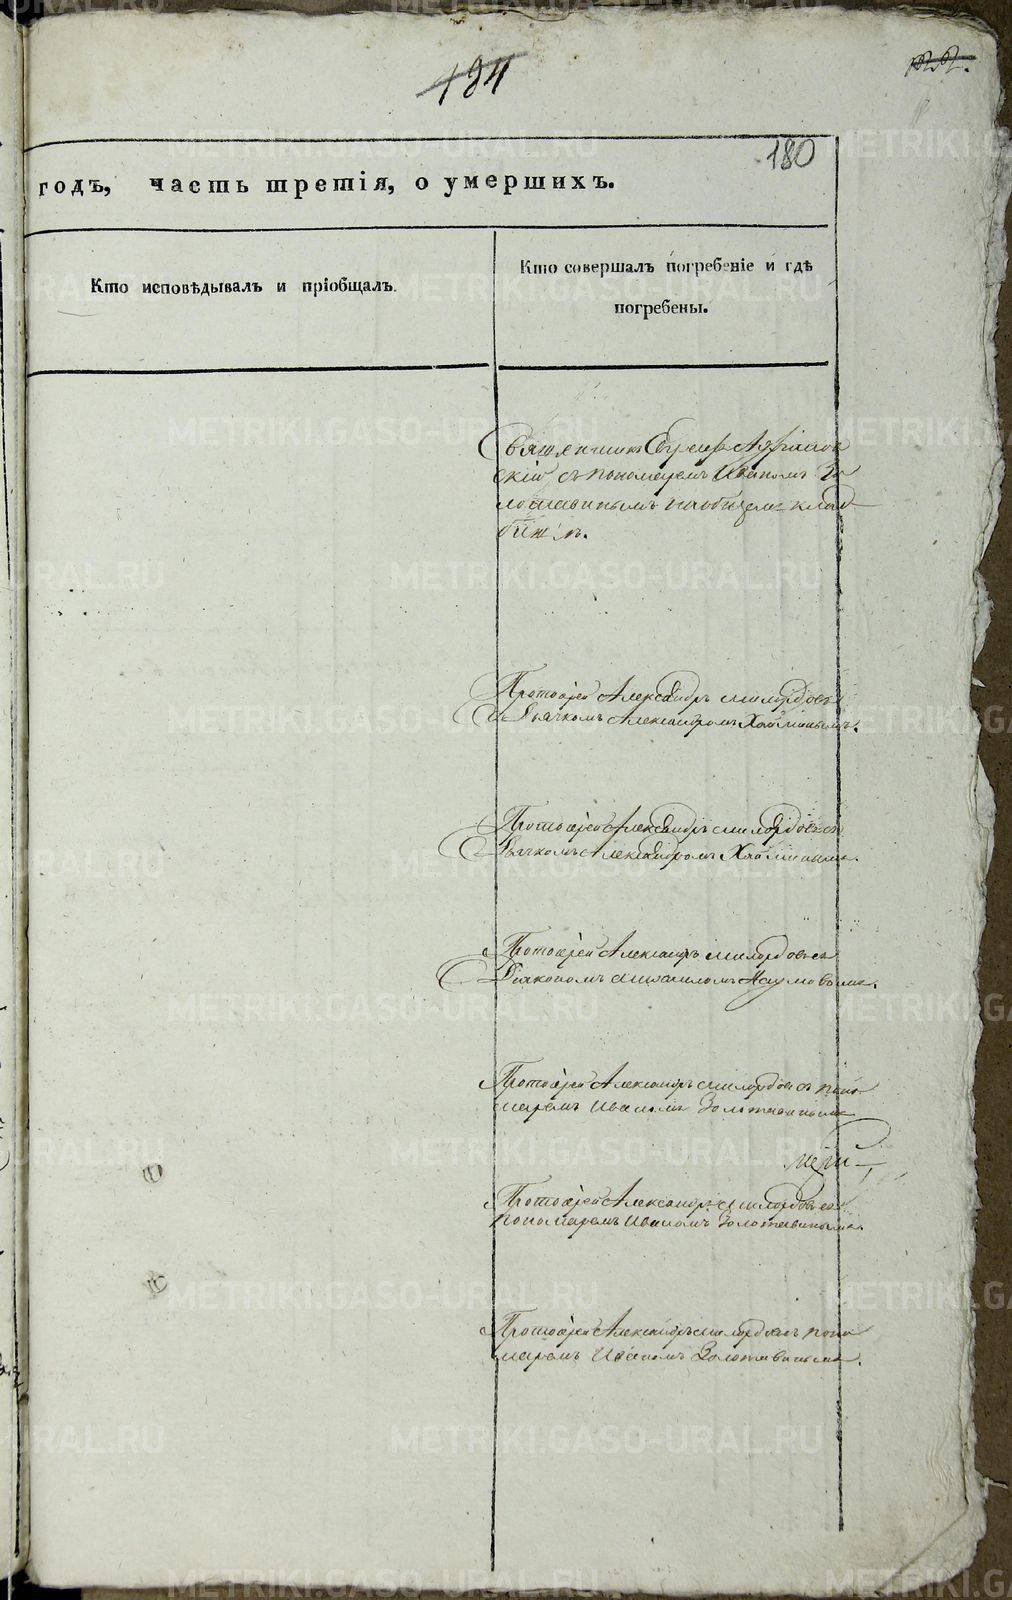 194
180
годъ, часть третія, о умершихъ.
Кто исповѣдывалъ и пріобщалъ.
Кто совершалъ погребеніе и гдѣ
погребены.
Священникъ
скій съ пономаремъ Иваномъ Зо
лотавинымъ на общемъ клад
бищѣ.
Протоіерей Александръ Милордовъ съ
Дьячкомъ Александромъ Хлопинымъ.
Протоіерей Александръ Милордовъ съ
Дьячкомъ Александромъ Хлопинымъ.
Протоіерей Александръ Милордовъ съ
Діакономъ Михаиломъ Наумовымъ.
Протоіерей Александръ Милордовъ съ поно
маремъ Иваномъ Золотавинымъ
Протоіерей Александръ Милордовъ съ
пономаремъ Иваномъ Золотавинымъ.
Протоіерей Александръ Милордовъ съ поно
маремъ Иваномъ Золотавинымъ.
METRIKI.GASO-URAL.RU